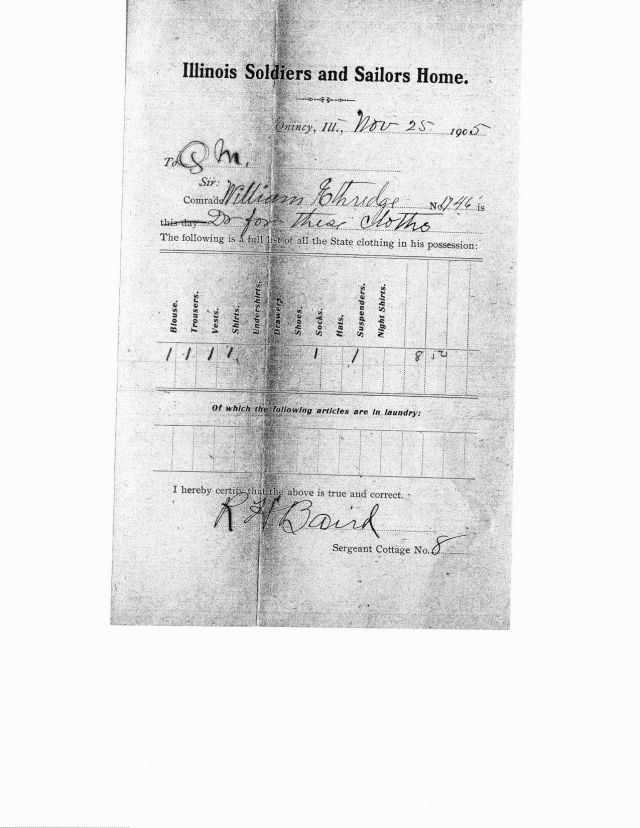 Illinois Soldiers and Sailors Home.
Quincy, Ill., Nov 25 1905
To Q M.
Sir:
Comrade William Ethredge No. 1746 is
this day Do for these Cloths
The following is a full list of all the State clothing in his possession:
Blouse. Trousers. Vests. Shirts. Undershirts. Drawers. Shoes. Socks. Hats. Suspenders. Night Shirts.
1 1 1 1 1 1 8
Of which the following articles are in laundry:
I hereby certify that the above is true and correct.
R H Baird
Sergeant Cottage No. 8